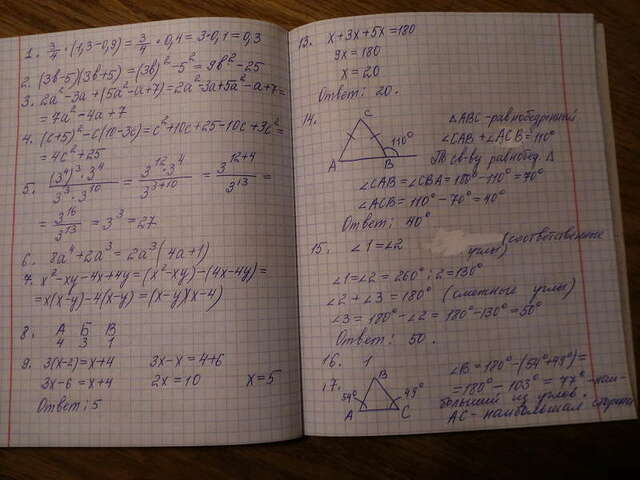 1. 3/4 · (1,3-0,9) = 3/4 · 0,4 = 3·0,1 = 0,3
2. (3b-5)(3b+5) = (3b)²-5² = 9b²-25
3. 2a²-3a+(5a²-a+7) = 2a²-3a+5a²-a+7=
= 7a²-4a+7
4. (c+5)²-c(10-3c) = c²+10c+25-10c+3c²=
= 4c²+25
5. (3⁴)³·3⁴ / 3³·3¹⁰ = 3¹²·3⁴ / 3³⁺¹⁰ = 3¹²⁺⁴ / 3¹³ =
= 3¹⁶ / 3¹³ = 3³ = 27
6. 8a⁴+2a³ = 2a³(4a+1)
7. x²-xy-4x+4y = (x²-xy)-(4x-4y) =
= x(x-y)-4(x-y) = (x-y)(x-4)
8. А Б В
4 3 1
9. 3(x-2) = x+4 3x-x = 4+6
3x-6 = x+4 2x = 10 x = 5
Ответ: 5
13. x+3x+5x = 180
9x = 180
x = 20
Ответ: 20.
14. C △ABC - равнобедренный
110° ∠CAB + ∠ACB = 110°
A B По св-ву равнобед. △
∠CAB = ∠CBA = 180°-110° = 70°
∠ACB = 110°-70° = 40°
Ответ: 40°
15. ∠1=∠2 (соответственные
углы)
∠1=∠2 = 260°:2=130°
∠2+∠3 = 180° (смежные углы)
∠3 = 180°-∠2 = 180°-130° = 50°
Ответ: 50.
16. 1
17. B ∠B = 180°-(54°+49°) =
54° 49° = 180° - 103° = 77° - наи-
больший из углов.
A C AC - наибольшая сторона